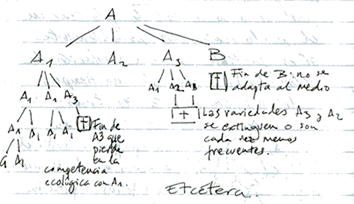 A
A₁ A₂ A₃ B
Fin de B: no se
adapta al medio
A₁ A₁ A₃
A₁ A₂ A₃
A₁ A₁ A₁ A₁
Fin de
A3 que
pierde
en la
competencia
ecológica con A₁.
Las variedades A₃ y A₂
se extinguen o son
cada vez menos
frecuentes.
A₁
Etcétera.